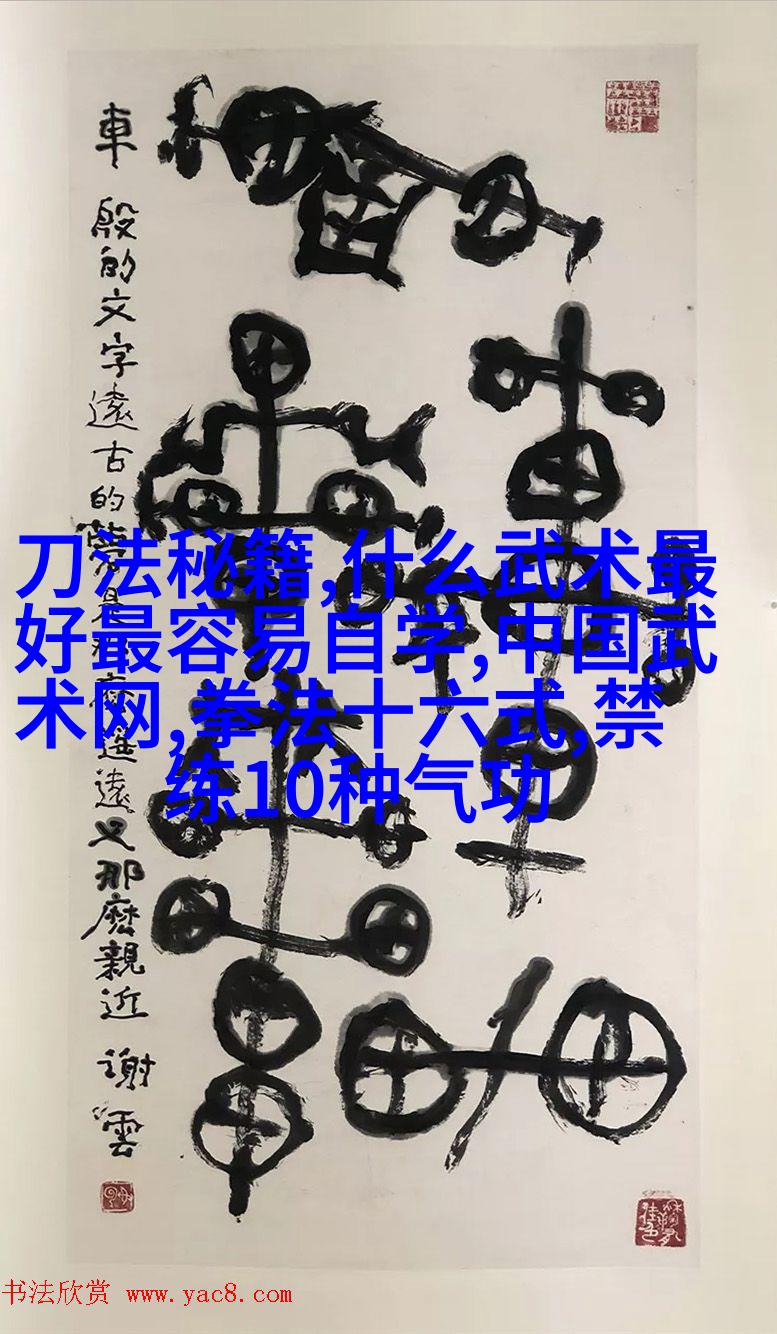 車 殷的文字遠古的夢是那麽遥遠又那麽親近 謝雲
刀法秘籍,什么武术最
好最容易自学,中国武
术网,拳法十六式,禁
练10种气功
书法欣赏 www.yac8.com